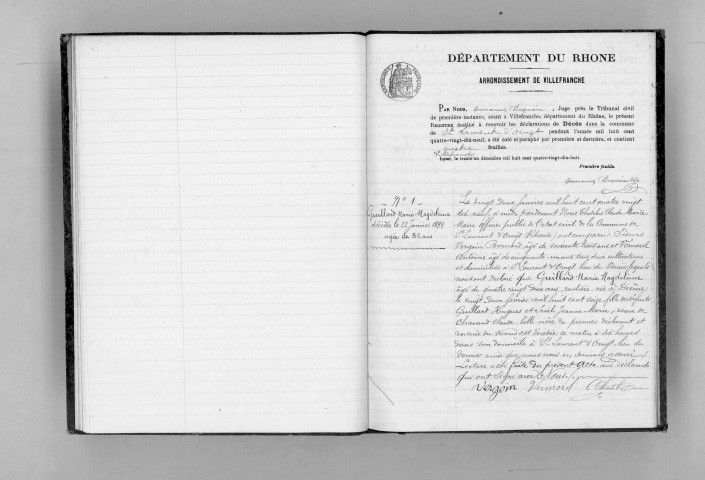 DÉPARTEMENT DU RHONE
ARRONDISSEMENT DE VILLEFRANCHE
PAR NOUS, , Juge près le Tribunal civil
de première instance, séant à Villefranche, département du Rhône, le présent
REGISTRE destiné à recevoir les déclarations de Décès dans la commune
de St Laurent d'Oingt pendant l'année mil huit cent
quatre-vingt-dix-neuf, a été coté et paraphé par première et dernière, et contient
quatre feuilles.
Villefranche, le trente-un décembre mil huit cent quatre-vingt-dix-huit.
Première feuille.
N° 1
Guillard Marie Magdeleine
décédée le 22 Janvier 1899
agée de 82 ans
Le vingt deux janvier mil huit cent quatre vingt
dix neuf à midi pardevant Nous Claude Marie
Maire officier public de l'état civil de la Commune de
St Laurent d'Oingt (Rhône) ont comparu Sieurs
Vergoin âgé de soixante ans et Vermorel
Antoine âgé de cinquante un ans tous deux cultivateurs
et domiciliés à St Laurent d'Oingt lieu du lesquels
nous ont déclaré que Guillard Marie Magdeleine
âgée de quatre vingt deux ans, rentière née à
le vingt deux février mil huit cent seize fille des défunts
Guillard Hugues et Jeanne Marie, veuve de
Claude belle mère du premier déclarant et
voisine du second est décédée ce matin à six heures
dans son domicile à St Laurent d'Oingt, lieu du
ainsi que nous nous en sommes assuré
Lecture a été faite du présent acte aux déclarants
qui ont signé avec Nous
Vergoin Vermorel